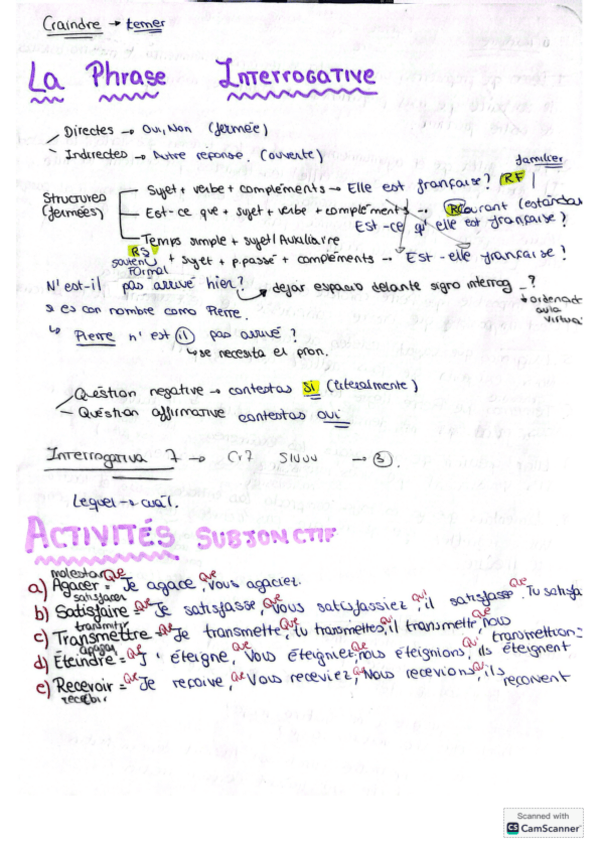 Craindre → temer
La Phrase Interrogative
Directes → Oui, Non (fermée)
Indirectes → Autre réponse. (ouverte)
familier
Structures (fermées)
Sujet + verbe + compléments → Elle est française? RF
Est-ce que + sujet + verbe + compléments → RCourant (estándar
Est-ce q' elle est française?
Temps simple + sujet / Auxiliaire
RS
soutenu
Formal
+ sujet + p.passé + compléments → Est-elle française?
N'est-il pas arrivé hier? → dejar espacio delante signo interrog _?
ordenad
aula
virtual
si es con nombre como Pierre.
↳ Pierre n'est il pas arrivé?
↳ se necesita el pron.
Question negative → contestas Si (literalmente)
Quéstian affirmative contestas oui
Interrogativa 7 → Cr7 Siuuu → 3.
Lequel → cuál.
ACTIVITÉS SUBJONCTIF
molestar
a) Agacer = Que Je agace, que Vous agaciez.
satisfacer
b) Satisfaire = Que Je satisfasse, Que Vous satisfassiez, qu' il satisfasse. Que Tu satisfa
transmitir
c) Transmettre = Que Je transmette, Que tu transmettes, qu' il transmette, que nous transmettion=
apagar
d) Éteindre = Que J' éteigne, que Vous éteigniez, que nous éteignions, qu' ils éteignent
e) Recevoir = Que Je reçoive, que Vous receviez, que Nous recevions, qu' ils reçoivent
recibir
Scanned with
CS CamScanner